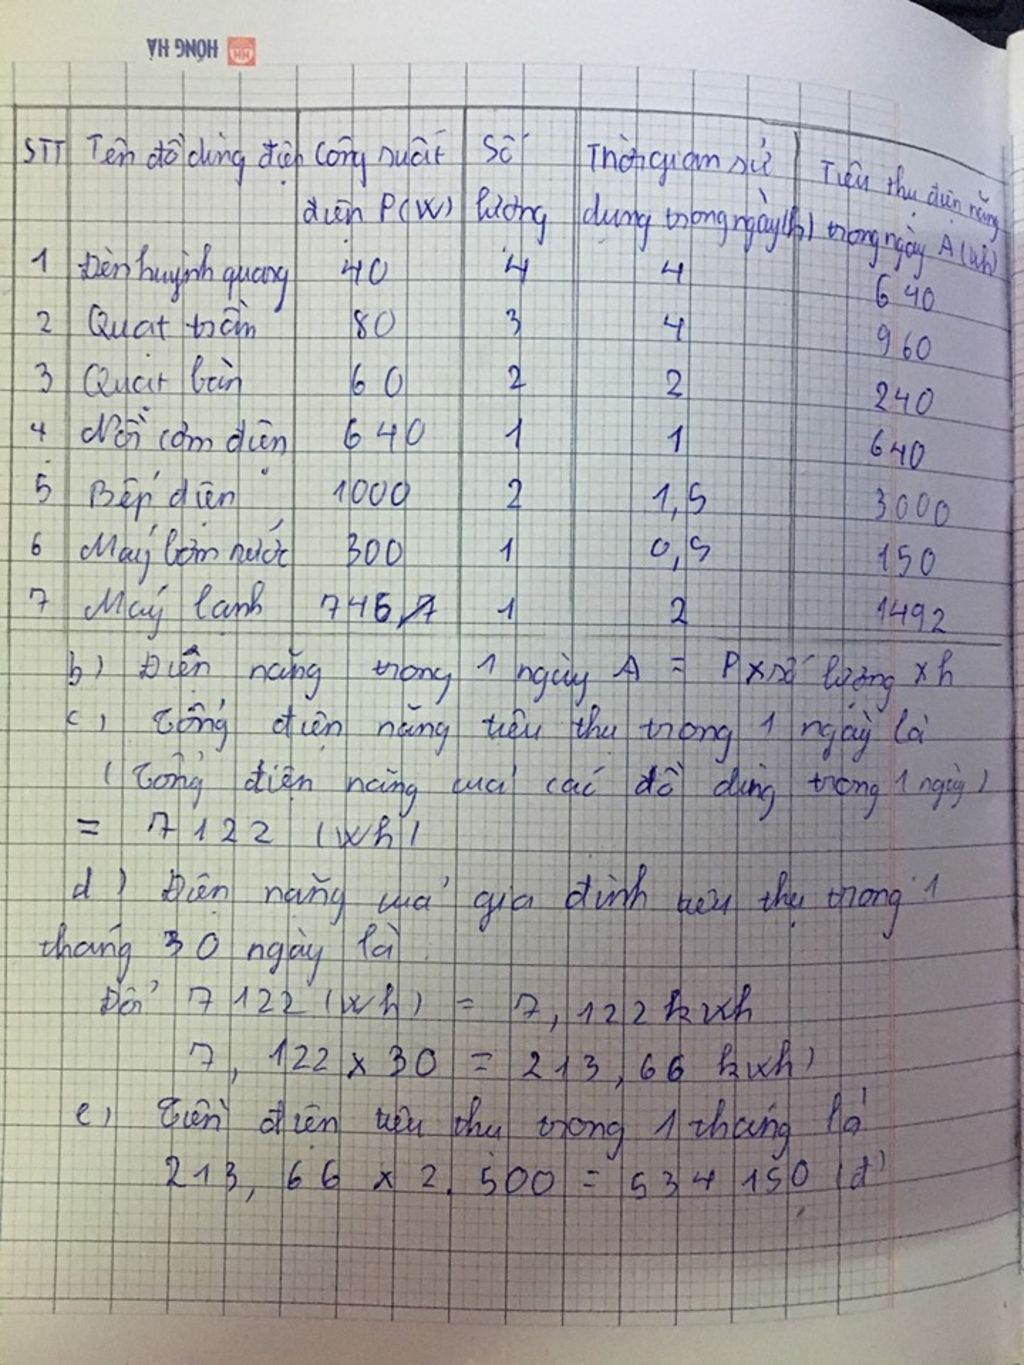 HỒNG HÀ
STT Tên đồ dùng điện Công suất điện P(W) Số lượng Thời gian sử dụng trong ngày (h) Tiêu thụ điện năng trong ngày A (Wh)
1 Đèn huỳnh quang 40 4 4 640
2 Quạt trần 80 3 4 960
3 Quạt bàn 60 2 2 240
4 Nồi cơm điện 640 1 1 640
5 Bếp điện 1000 2 1,5 3000
6 Máy bơm nước 300 1 0,5 150
7 Máy lạnh 746 1 2 1492
b) Điện năng trong 1 ngày A = P x số lượng x h
c) Tổng điện năng tiêu thụ trong 1 ngày là
(Tổng điện năng của các đồ dùng trong 1 ngày)
= 7122 (Wh)
d) Điện năng của gia đình tiêu thụ trong 1
tháng 30 ngày là
Đổi 7122 (Wh) = 7,122 kWh
7,122 x 30 = 213,66 kWh)
e) Tiền điện tiêu thụ trong 1 tháng là
213,66 x 2.500 = 534 150 (đ)